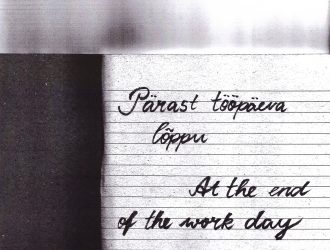 Pärast tööpäeva
lõppu
At the end
of the work day